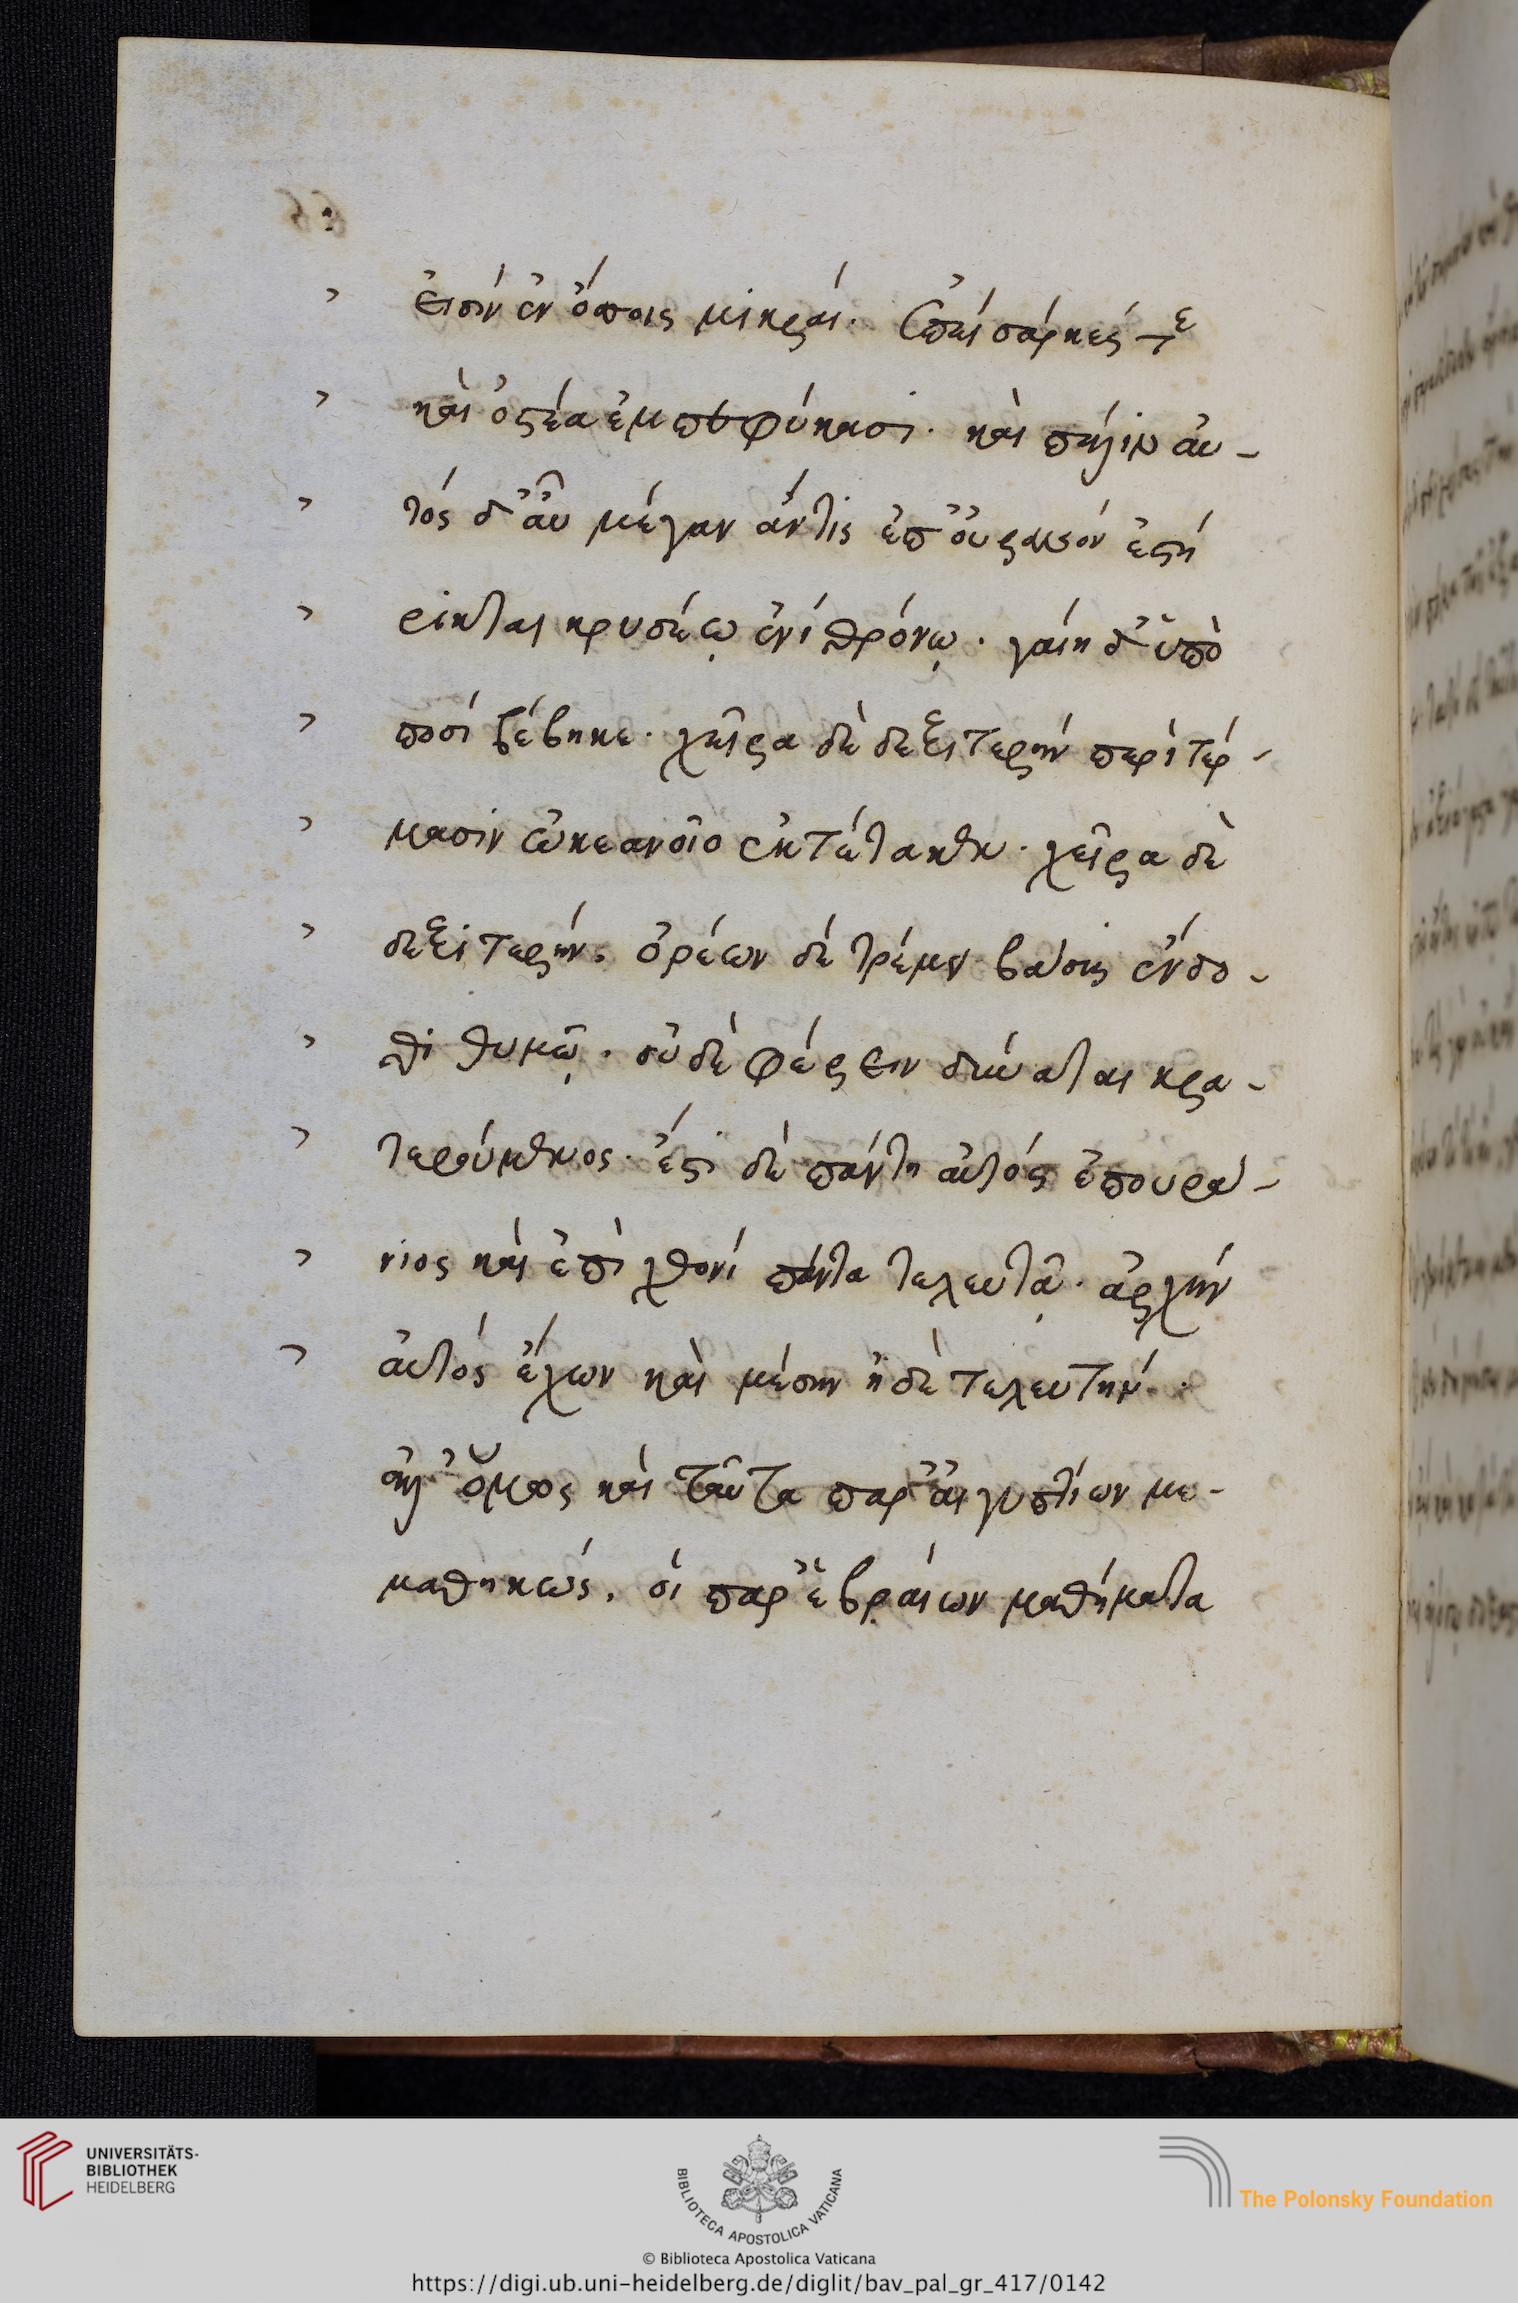 εἰσὶν ἐν ὄσσοις μικραί. ἐπεὶ σάρκές τε
καὶ ὀστέα ἐμπεφύκασι· καὶ πάλιν αὐ-
τός δ' ἂὖ μέγαν ἄντις ἐπ' οὐρανόν ἐστή
ρικται χρυσέῳ ἐνὶ θρόνῳ· γαίη δ' ὑπὸ
ποσὶ βέβηκε· χεῖρα δὲ δεξιτερὴν περὶ τέρ-
μασιν ὠκεανοῖο ἐκτέτακεν· χεῖρα δὲ
δεξιτερήν. ὀρέων δὲ τρέμει βάσις ἔνδο-
θι θυμῷ. οὐδὲ φέρειν δύναται κρα-
τερόν μένος· ἔστι δὲ πάντη αὐτός ἐπουρά-
νιος καὶ ἐπὶ χθονὶ πάντα τελευτᾷ· ἀρχὴν
αὐτός ἔχων καὶ μέσην ἠδὲ τελευτήν.
ἀλλ' ὅμως καὶ ταῦτα παρ' αἰγυπτίων με-
μαθηκώς. οἱ παρ' ἑβραίων μαθήματα
UNIVERSITÄTS-
BIBLIOTHEK
HEIDELBERG
BIBLIOTECA APOSTOLICA VATICANA
The Polonsky Foundation
© Biblioteca Apostolica Vaticana
https://digi.ub.uni-heidelberg.de/diglit/bav_pal_gr_417/0142